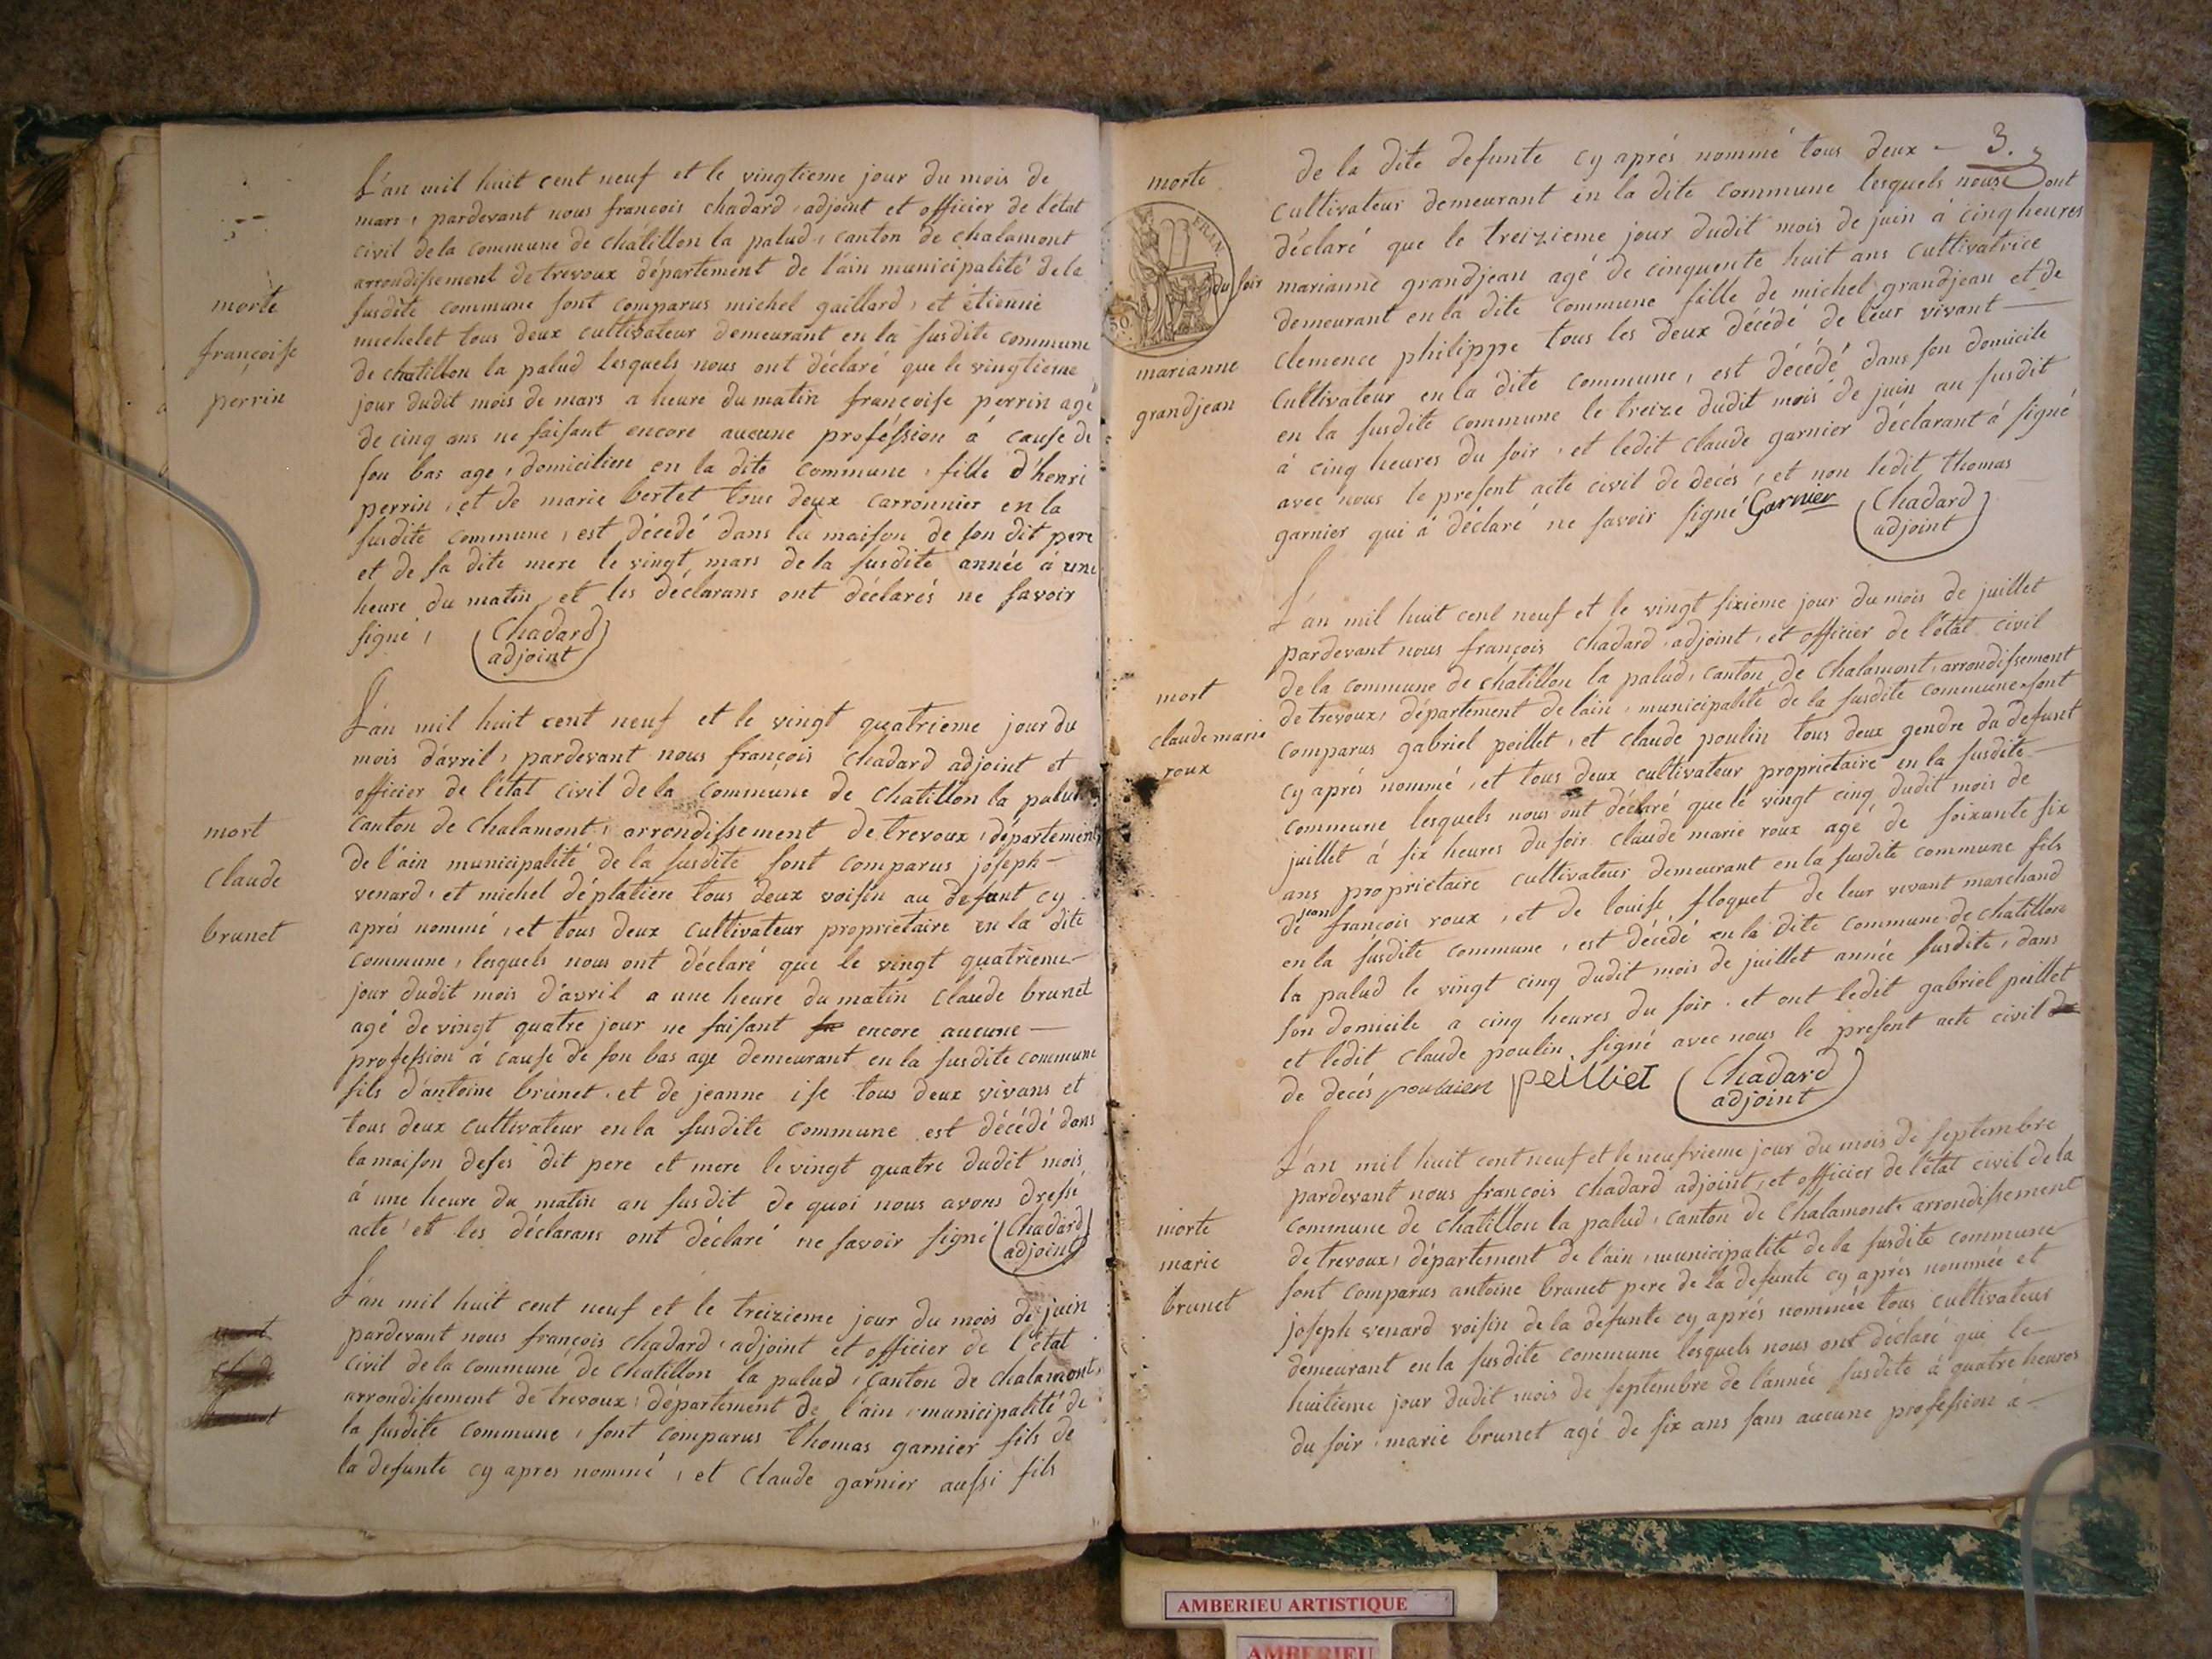 L'an mil huit cent neuf et le vingtieme jour du mois de
mars, pardevant nous francois chadard, adjoint et officier de l'état
civil de la commune de châtillon la palud, canton de chalamont
arrondissement de trevoux département de l'ain municipalité de la
susdite commune sont comparus michel gaillard, et étienne
michelet tous deux cultivateur demeurant en la susdite commune
de chatillon la palud lesquels nous ont déclaré que le vingtieme
jour dudit mois de mars a heure du matin francoise perrin agé
de cinq ans ne faisant encore aucune proféssion a cause de
son bas age, domiciliée en la dite commune, fille d'henri
perrin, et de marie bertet tous deux carronnier en la
susdite commune, est décédé dans la maison de son dit pere
et de sa dite mere le vingt mars de la susdite année à une
heure du matin et les déclarans ont déclarés ne savoir
signé,
Chadard
adjoint
morte
françoise
perrin
L'an mil huit cent neuf et le vingt quatrieme jour du
mois d'avril, pardevant nous françois chadard adjoint et
officier de l'état civil de la commune de chatillon la palud
canton de chalamont, arrondissement de trevoux, département
de l'ain municipalité de la susdite sont comparus joseph -
venard, et michel déplatiere tous deux voisin au defunt cy
aprés nommé, et tous deux cultivateur proprietaire en la dite
commune, lesquels nous ont déclaré que le vingt quatrieme -
jour dudit mois d'avril a une heure du matin claude brunet
agé de vingt quatre jour ne faisant encore aucune -
profession à cause de son bas age demeurant en la susdite commune
fils d'antoine brunet, et de jeanne ise tous deux vivans et
tous deux cultivateur en la susdite commune est décédé dans
la maison de ses dit pere et mere le vingt quatre dudit mois
à une heure du matin an susdit de quoi nous avons dressé
acte, et les déclarans ont déclaré ne savoir signé
Chadard
adjoint
mort
claude
brunet
L'an mil huit cent neuf et le treizieme jour du mois de juin
pardevant nous françois chadard, adjoint et officier de l'état
civil de la commune de chatillon la palud, canton de chalamont,
arrondissement de trevoux, département de l'ain, municipalité de
la susdite commune, sont comparus thomas garnier fils de
la defunte cy apres nommé, et claude garnier aussi fils
3.
de la dite defunte cy aprés nommé tous deux -
cultivateur demeurant en la dite commune lesquels nous ont
déclaré que le treizieme jour dudit mois de juin à cinq heures
du soir marianne grandjean agé de cinquente huit ans cultivatrice
demeurant en la dite commune fille de michel grandjean et de
clemence philippe tous les deux décédé de leur vivant -
cultivateur en la dite commune, est décédé dans son domicile
en la susdite commune le treize dudit mois de juin an susdit
à cinq heures du soir, et ledit claude garnier déclarant à signé
avec nous le present acte civil de decés, et non ledit thomas
garnier qui à déclaré ne savoir signé Garnier
Chadard
adjoint
morte
marianne
grandjean
L'an mil huit cent neuf et le vingt sixieme jour du mois de juillet
pardevant nous françois chadard, adjoint, et officier de l'état civil
de la commune de chatillon la palud, canton, de chalamont, arrondissement
de trevoux, département de l'ain, municipalité de la susdite commune sont
comparus gabriel peillet, et claude poulin tous deux gendre du defunt
cy aprés nommé, et tous deux cultivateur proprietaire en la susdite -
commune lesquels nous ont déclaré que le vingt cinq dudit mois de
juillet à six heures du soir claude marie roux agé de soixante six
ans proprietaire cultivateur demeurant en la susdite commune fils
de jean françois roux, et de louise floquet de leur vivant marchand
en la susdite commune, est décédé en la dite commune de chatillon
la palud le vingt cinq dudit mois de juillet année susdite, dans
son domicile a cinq heures du soir, et ont ledit gabriel peillet
et ledit claude poulin signé avec nous le present acte civil
de decés peilliet
Chadard
adjoint
mort
claude marie
roux
L'an mil huit cent neuf et le neufvieme jour du mois de septembre
pardevant nous francois chadard adjoint, et officier de l'état civil de la
commune de chatillon la palud, canton de chalamont, arrondissement
de trevoux, département de l'ain, municipalité de la susdite commune
sont comparus antoine brunet pere de la defunte cy aprés nommée et
joseph venard voisin de la defunte cy aprés nommée tous cultivateur
demeurant en la susdite commune lesquels nous ont déclaré que le -
huitieme jour dudit mois de septembre de l'année susdite à quatre heures
du soir, marie brunet agé de six ans sans aucune profession à -
morte
marie
brunet
AMBERIEU ARTISTIQUE
AMBERIEU